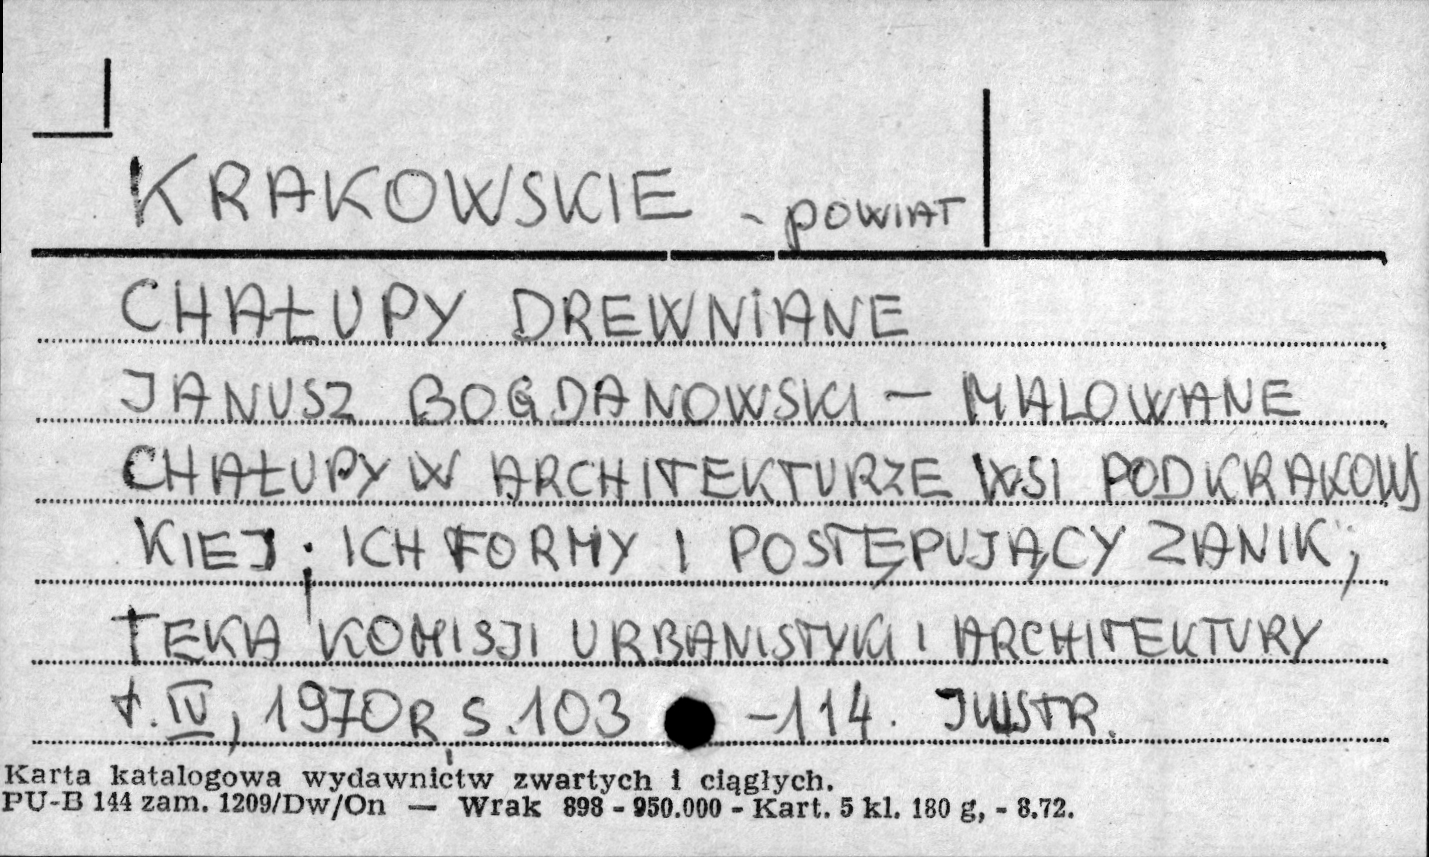 KRAKOWSKIE - POWIAT
CHAŁUPY DREWNIANE
JANUSZ BOGDANOWSKI - MALOWANE
CHAŁUPY W ARCHITEKTURZE WSI PODKRAKOWS
KIEJ; ICH FORMY I POSTĘPUJĄCY ZANIK",
TEKA KOMISJI URBANISTYKI I ARCHITEKTURY
t. IV, 1970R, S. 103 - 114. ILUSTR.
Karta katalogowa wydawnictw zwartych i ciągłych.
PU-B 144 zam. 1209/Dw/On — Wrak 898 - 950.000 - Kart. 5 kl. 180 g, - 8.72.